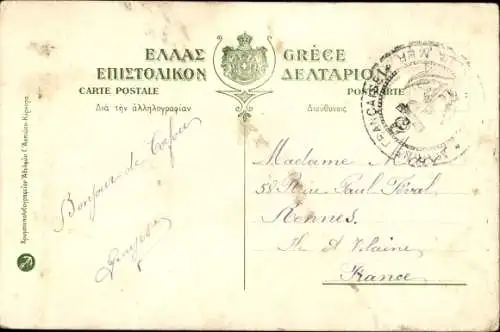 ΕΛΛΑΣ GRÈCE
ΕΠΙΣΤΟΛΙΚΟΝ ΔΕΛΤΑΡΙΟΝ
CARTE POSTALE POSTKARTE
Διὰ τὴν ἀλληλογραφίαν Διεύθυνσις
Bonjour de Corfou
Madame
58 Rue Paul Féval
Rennes.
Ille et Vilaine
France